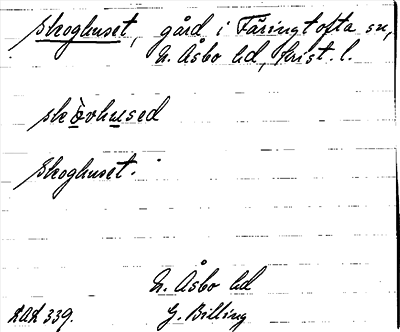 Skoghuset, gård i Färingtofta sn,
N. Åsbo hd, Krist. l.
skòvhused
Skoghuset.
N. Åsbo hd
LAL 339. G. Billing